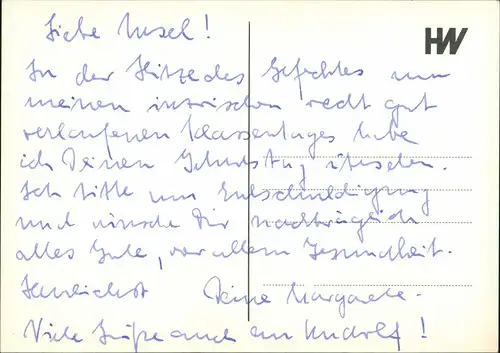 HW
Liebe Ursel!
In der Hitze des Gefechtes um
meinen inzwischen recht gut
verlaufenen Klassentages habe
ich Deinen Geburtstag übersehen.
Ich bitte um Entschuldigung
und wünsche Dir nachträglich
alles Gute, vor allem Gesundheit.
Herzlichst Deine Margarete.
Viele Grüße auch an Rudolf!